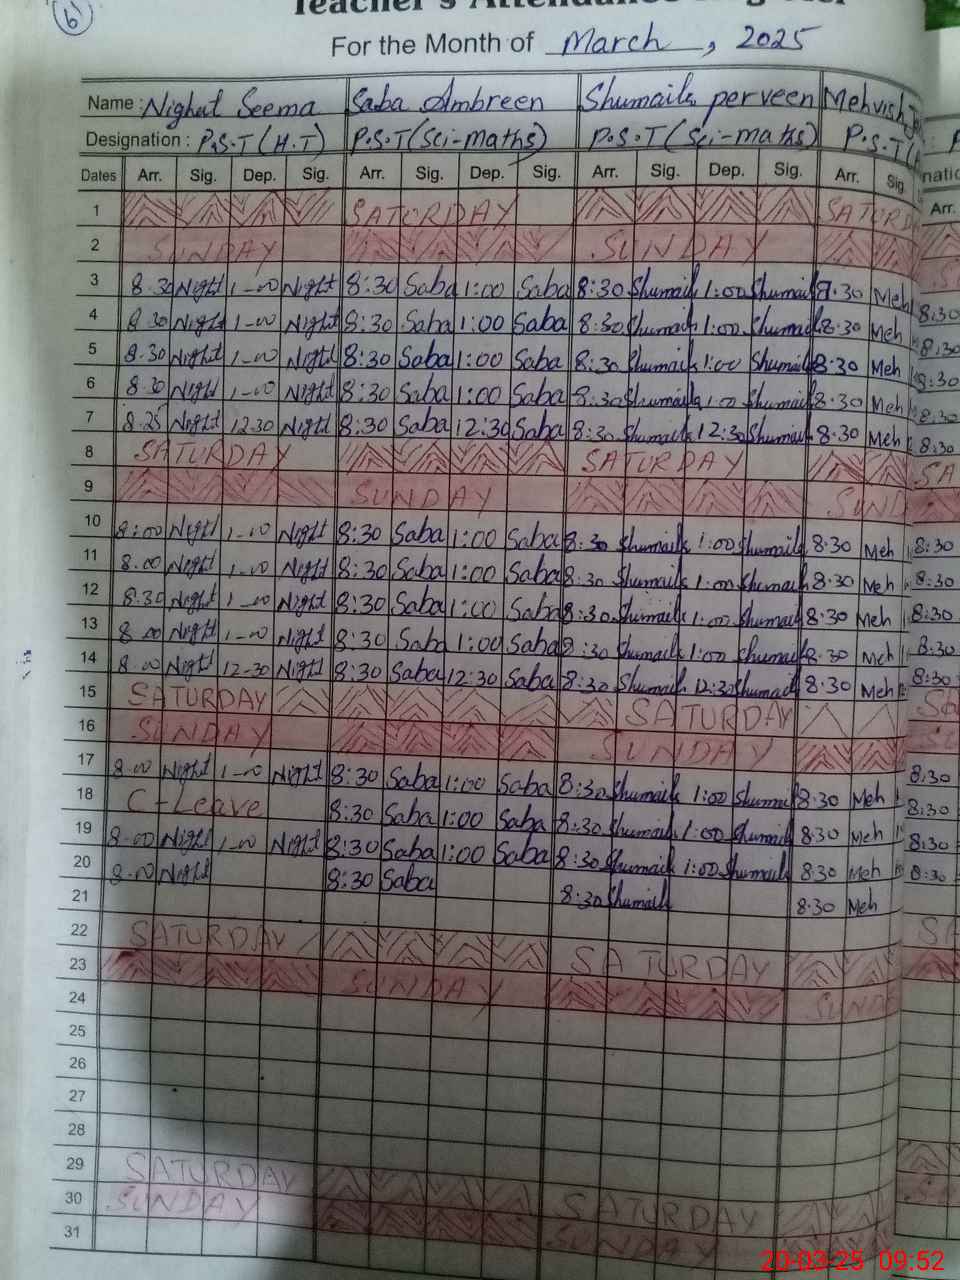 6
Teacher's Attendance Register
For the Month of March, 2025
Name : Nighat Seema Saba Ambreen Shumaila perveen Mehvish
Designation : P.S.T (H.T) P.S.T (Sci-maths) P.S.T (Sci-maths) P.S.T
Dates Arr. Sig. Dep. Sig. Arr. Sig. Dep. Sig. Arr. Sig. Dep. Sig. Arr. Sig. Arr.
1 SATURDAY SATURD
2 SUNDAY SUNDAY
3 8.30 Night 1-00 Night 8:30 Saba 1:00 Saba 8:30 Shumaila 1:00 Shumaila 8.30 Meh
4 8.30 Night 1-00 Night 8:30 Saba 1:00 Saba 8:30 Shumaila 1:00 Shumaila 8.30 Meh 8:30
5 8.30 Night 1-00 Night 8:30 Saba 1:00 Saba 8:30 Shumaila 1:00 Shumaila 8.30 Meh 8:30
6 8.30 Night 1-00 Night 8:30 Saba 1:00 Saba 8:30 Shumaila 1:00 Shumaila 8.30 Meh 8:30
7 8.25 Night 12.30 Night 8:30 Saba 12:30 Saba 8:30 Shumaila 12:30 Shumaila 8.30 Meh 8:30
8 SATURDAY SATURDAY SA
9 SUNDAY SUND
10 8:00 Night 1-00 Night 8:30 Saba 1:00 Saba 8:30 Shumaila 1:00 Shumaila 8.30 Meh 8:30
11 8.00 Night 1-00 Night 8:30 Saba 1:00 Saba 8:30 Shumaila 1:00 Shumaila 8.30 Meh 8:30
12 8.30 Night 1-00 Night 8:30 Saba 1:00 Saba 8:30 Shumaila 1:00 Shumaila 8.30 Meh 8:30
13 8.00 Night 1-00 Night 8:30 Saba 1:00 Saba 8:30 Shumaila 1:00 Shumaila 8.30 Meh 8:30
14 8.00 Night 12-30 Night 8:30 Saba 12:30 Saba 8:30 Shumaila 12:30 Shumaila 8.30 Meh 8:30
15 SATURDAY SATURDAY SA
16 SUNDAY SUNDAY
17 8.00 Night 1-00 Night 8:30 Saba 1:00 Saba 8:30 Shumaila 1:00 Shumaila 8.30 Meh 8:30
18 C-Leave 8:30 Saba 1:00 Saba 8:30 Shumaila 1:00 Shumaila 8.30 Meh 8:30
19 8-00 Night 1-00 Night 8:30 Saba 1:00 Saba 8:30 Shumaila 1:00 Shumaila 8.30 Meh 8:30
20 8.00 Night 8:30 Saba 8:30 Shumaila 8.30 Meh 8:30
21
22 SATURDAY SATURDAY SA
23 SUNDAY SUND
24
25
26
27
28
29 SATURDAY SATURDAY
30 SUNDAY SUNDAY
31
20-03-25 09:52